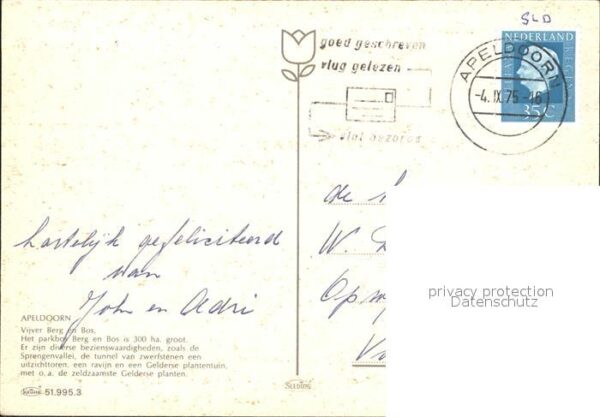 SLD
NEDERLAND
35 C
APELDOORN
-4.IX.75.-16
goed geschreven
vlug gelezen
vlot bezorgd
de
W.
hartelijk gefeliciteerd
van
John en Adri
privacy protection
Datenschutz
APELDOORN
Vijver Berg en Bos.
Het parkbos Berg en Bos is 300 ha. groot.
Er zijn diverse bezienswaardigheden, zoals de
Sprengenvallei, de tunnel van zwerfstenen een
uitzichttoren, een ravijn en een Gelderse plantentuin,
met o.a. de zeldzaamste Gelderse planten.
51.995.3